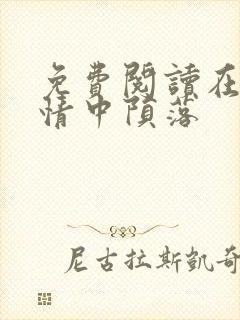 免費閱讀在
情中隕落
尼古拉斯凱奇